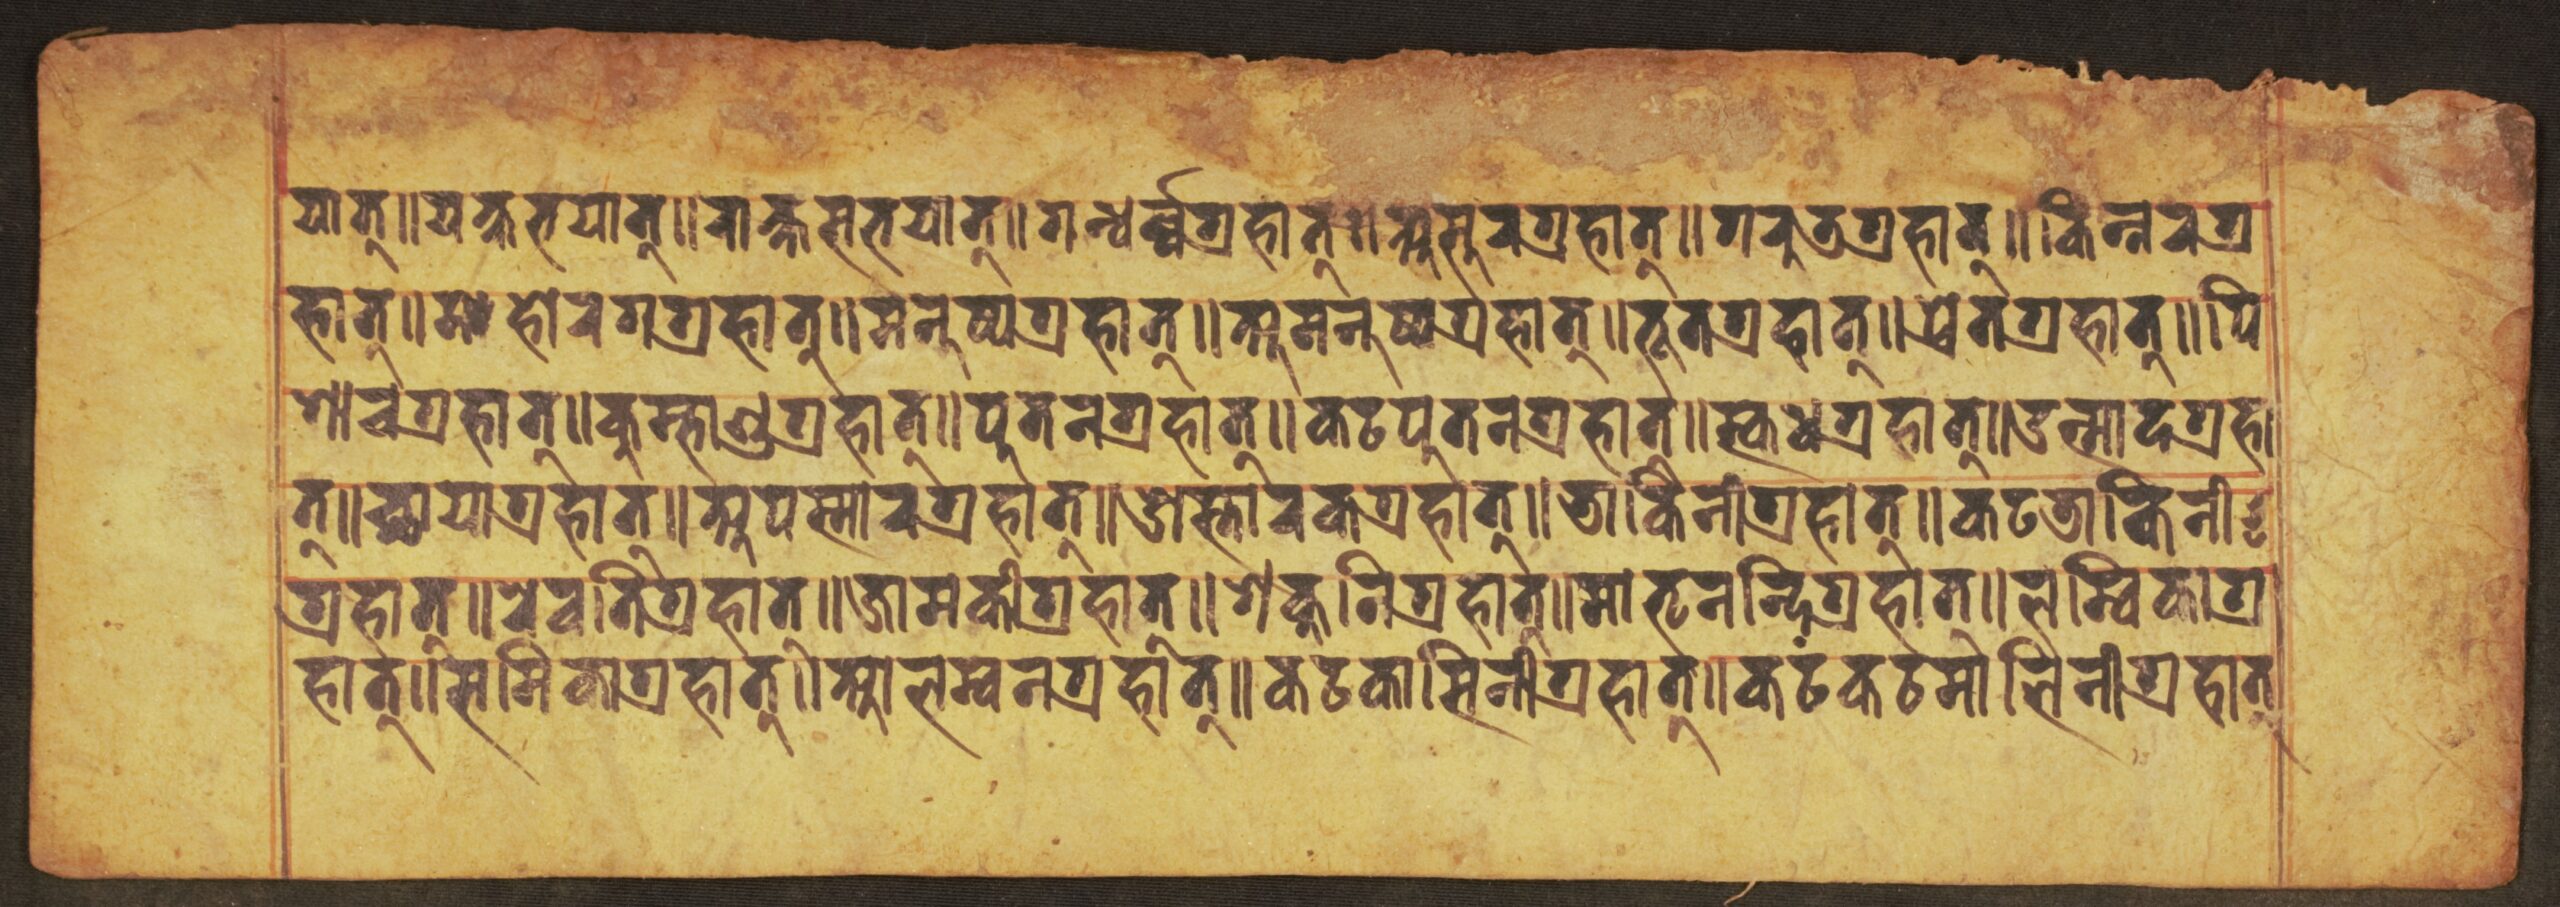 यात्॥यक्षभयात्॥राक्षसभयात्॥गन्धर्व्वग्रहात्॥असुरग्रहात्॥गरुडग्रहात्॥किन्नरग्र
हात्॥महोरगग्रहात्॥मनुष्यग्रहात्॥अमनुष्यग्रहात्॥भूतग्रहात्॥प्रेतग्रहात्॥पि
शाचग्रहात्॥कुम्भाण्डग्रहात्॥पुतनग्रहात्॥कटपुतनग्रहात्॥स्कन्धग्रहात्॥उन्मादग्रहा
त्॥छायाग्रहात्॥अपस्मारग्रहात्॥ओस्तारकग्रहात्॥डाकिनीग्रहात्॥कटडाकिनी
ग्रहात्॥रेवतिग्रहात्॥जामकीग्रहात्॥शकुनिग्रहात्॥मातृनन्दिग्रहात्॥लम्बिकाग्र
हात्॥समिकाग्रहात्॥आलम्बनग्रहात्॥कटवासिनीग्रहात्॥कटंकटमालिनीग्रहात्